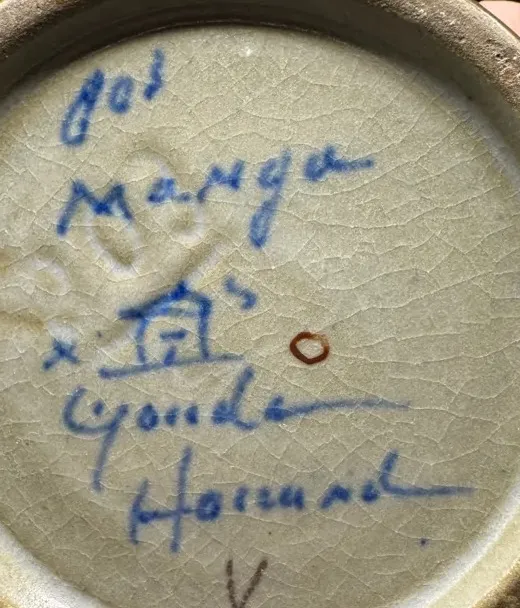 Manga
x
Gouda
Holland
V